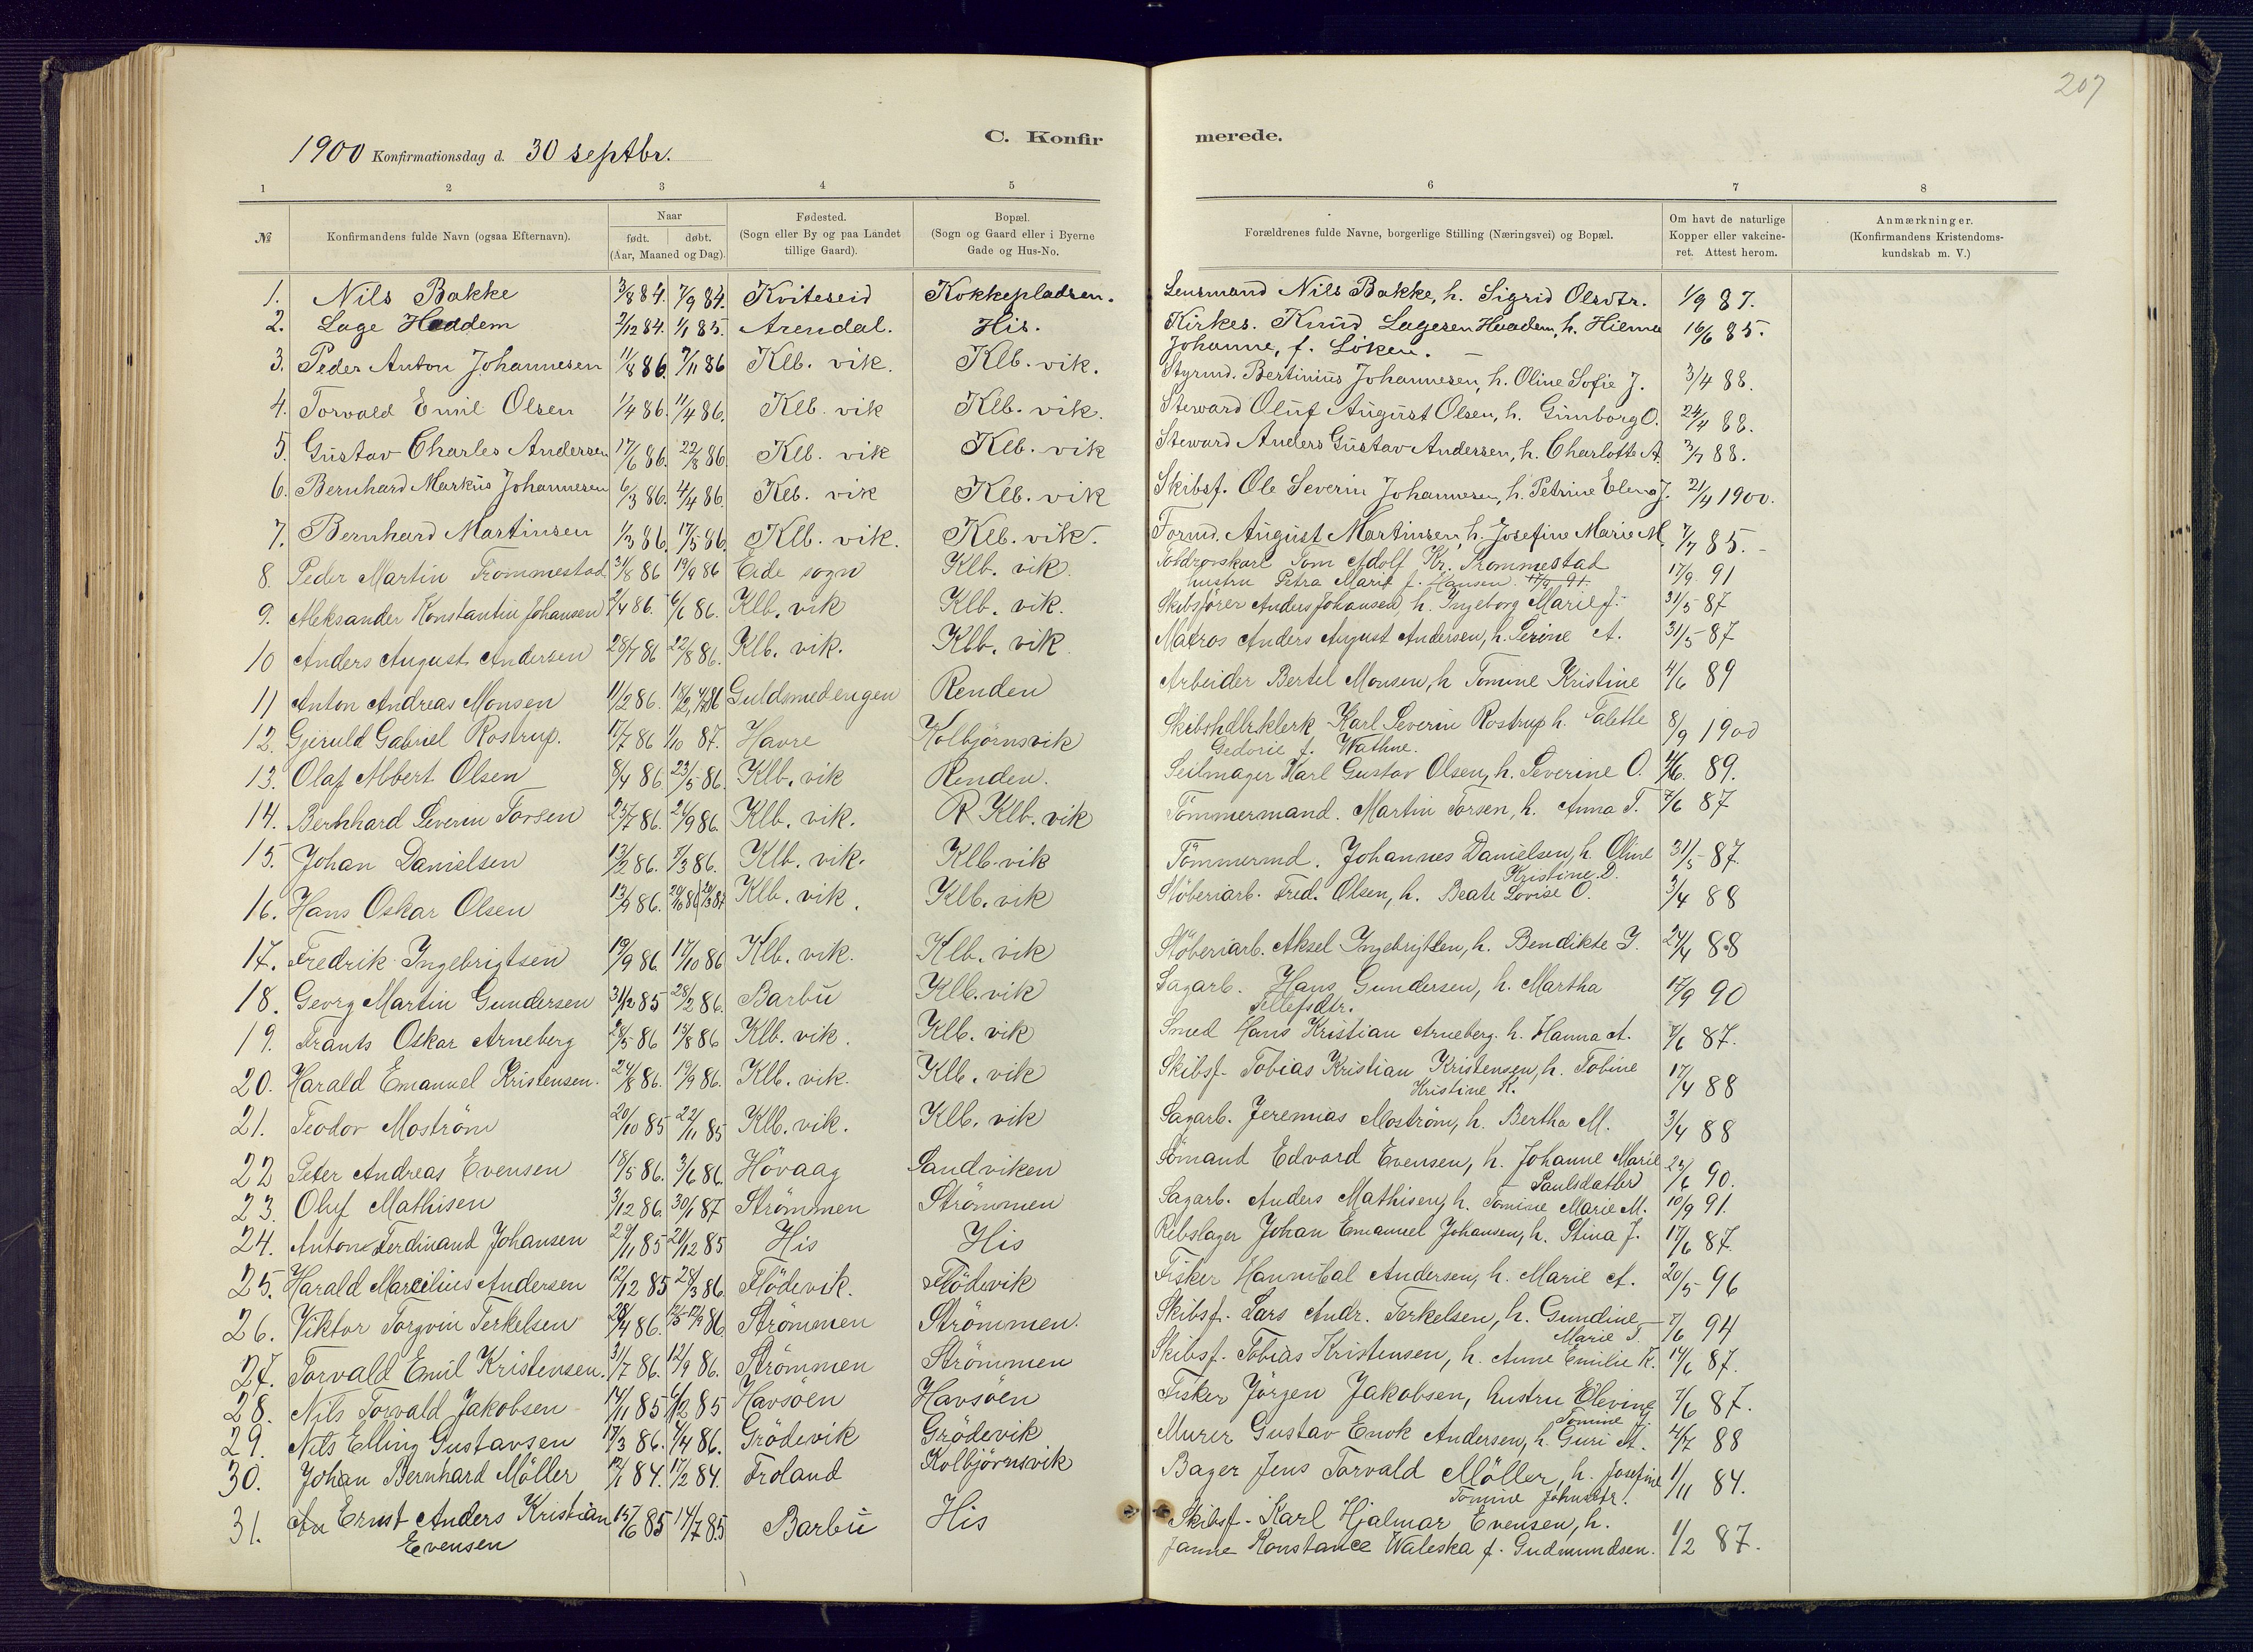 207
C. Konfirmerede.
1900 Konfirmationsdag d. 30 septbr.
1 2 3 4 5 6 7 8
№ Konfirmandens fulde Navn (ogsaa Efternavn). Naar født. døbt. (Aar, Maaned og Dag). Fødested. (Sogn eller By og paa Landet tillige Gaard). Bopæl. (Sogn og Gaard eller i Byerne Gade og Hus-No. Forældrenes fulde Navne, borgerlige Stilling (Næringsvei) og Bopæl. Om havt de naturlige Kopper eller vakcineret. Attest herom. Anmærkninger. (Konfirmandens Kristendomskundskab m. V.)
1. Nils Bakke 3/8 84. 7/9 84. Kviteseid Kokkepladsen. Lensmand Nils Bakke, h. Sigrid Olsdtr. 1/9 87.
2. Lage Haddem 2/12 84. 1/1 85. Arendal. His. Kirkes. Knud Lagesen Haadem, h. Hilma 16/6 85.
Johanne, f. Löken.
3. Peder Anton Johannesen 11/8 86. 7/11 86 Klb. vik. Klb. vik. Styrmd. Bertinius Johannesen, h. Oline Sofie J. 3/4 88.
4. Torvald Emil Olsen 1/4 86. 11/4 86. Klb. vik Klb. vik. Steward Oluf August Olsen, h. Gunborg O. 24/4 88.
5. Gustav Charles Andersen 17/6 86. 22/8 86. Klb. vik Klb. vik Steward Anders Gustav Andersen, h. Charlotte A. 3/7 88.
6. Bernhard Markus Johannesen 6/3 86. 4/4 86. Klb. vik Klb. vik Skibsf. Ole Severin Johannesen, h. Petrine Elena J. 21/4 1900.
7. Bernhard Martinsen 1/3 86. 17/5 86. Klb. vik. Klb. vik. Formd. August Martinsen, h. Josefine Marie M. 7/7 85.
8. Peder Martin Trommestad 31/8 86 19/9 86 Eide sogn Klb. vik. Tom Adolf Kr. Trommestad 17/9 91
hustru Petra Marie f. Hansen. 17/9 91.
9. Aleksander Konstantin Johansen 2/4 86. 6/6 86. Klb. vik Klb. vik. Skibsförer Anders Johansen h. Ingeborg Marie J. 31/5 87
10 Anders August Andersen 28/7 86 22/8 86. Klb. vik. Klb. vik. Matros Anders August Andersen, h. Serine A. 31/5 87
11 Anton Andreas Monsen 11/2 86. Guldsmedengen Renden Arbeider Bertel Monsen, h Tomine Kristine 4/6 89
12. Gjeruld Gabriel Rostrup. 17/7 86 1/10 87. Havre Kolbjörnsvik Skibshdlr.klerk Karl Severin Rostrup h. Talette 8/9 1900
Gedorie f. Wathne.
13. Olaf Albert Olsen 8/4 86 23/5 86. Klb. vik Renden. Seilmager Karl Gustav Olsen, h. Severine O. 4/6. 89.
14. Bernhard Severin Torsen 25/7 86. 26/9 86. Klb. vik. R Klb. vik Tömmermand. Martin Torsen, h. Anna T. 7/6 87
15. Johan Danielsen 13/2 86. 7/3 86. Klb. vik. Klb. vik Tömmermd. Johannes Danielsen, h. Oline 31/5 87.
Kristine D.
16. Hans Oskar Olsen 13/9 86. Klb. vik. Klb. vik Stöberiarb. Fred. Olsen, h. Beate Lovise O. 3/4 88
17. Fredrik Ingebrigtsen 19/9 86. 17/10 86 Klb. vik. Klb. vik Stöberiarb. Aksel Ingebrigtsen, h. Bendikte I. 24/4 88
18. Georg Martin Gundersen 31/12 85 28/2 86. Barbu Klb. vik Sagarb. Hans Gundersen, h. Martha 17/9 90
Tellefsdtr.
19. Frants Oskar Arneberg 28/5 86 15/8 86 Klb. vik. Klb. vik Smed Hans Kristian Arneberg. h. Hanna A. 7/6 87.
20. Harald Emanuel Kristensen. 24/8 86. 19/9 86. Klb. vik. Klb. vik Skibsf. Tobias Kristian Kristensen, h. Tobine 17/4 88
Kristine K.
21. Teodor Moström 20/10 85 22/11 85 Klb. vik. Klb. vik Sagarb. Jeremias Moström, h. Bertha M. 3/4 88
22 Peter Andreas Evensen 18/5 86. 3/6 86. Hövaag Sandviken Sömand Edvard Evensen, h. Johanne Marie 24/6 90.
Paulsdatter
23. Oluf Mathisen 3/12 86. 30/1 87 Strömmen Strömmen Sagarb. Anders Mathisen, h. Tomine Marie M. 10/9 91.
24. Anton Ferdinand Johansen 29/11 85 20/12 85 His His Rebslager Johan Emanuel Johansen, h. Stina J. 17/6 87.
25. Harald Marcilius Andersen 12/12 85 28/3 86. Flödevik. Flödevik Fisker Hannibal Andersen, h. Marie A. 20/5 96
26. Viktor Torgvin Terkelsen 28/4 86. Strömmen Strömmen. Skibsf. Lars Andr. Terkelsen, h. Gundine 7/6 94
Marie T.
27. Torvald Emil Kristensen. 31/7 86. 12/9 86. Strömmen Strömmen Skibsf. Tobias Kristensen, h. Anne Emilie K. 14/6 87.
28. Nils Torvald Jakobsen 14/11 85 6/12 85 Havsöen Havsöen Fisker Jörgen Jakobsen, hustru Elevine 7/6 87.
Tomine J.
29. Nils Elling Gustavsen 17/3 86. 4/4 86. Grödevik Grödevik Murer Gustav Enok Andersen, h. Guri A. 4/7 88
30. Johan Bernhard Möller 12/1 84. 17/2 84. Froland Kolbjörnsvik Bager Jens Torvald Möller, h. Josefine 1/11 84.
Tomine Johnsdtr.
31. Ernst Anders Kristian 15/6 85 14/7 85 Barbu His Skibsf. Karl Hjalmar Evensen, h.
Evensen Janne Konstance Waleska f. Gudmundsen. 1/2 87.